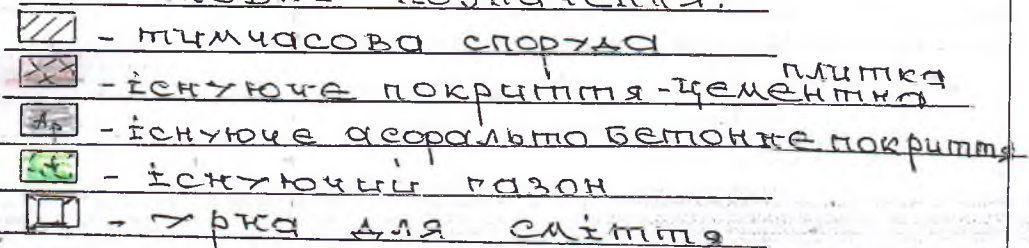 - тимчасова споруда
- існуюче покриття - цементна плитка
Ар - існуюче асфальто бетонне покриття
- існуючий газон
- урна для сміття